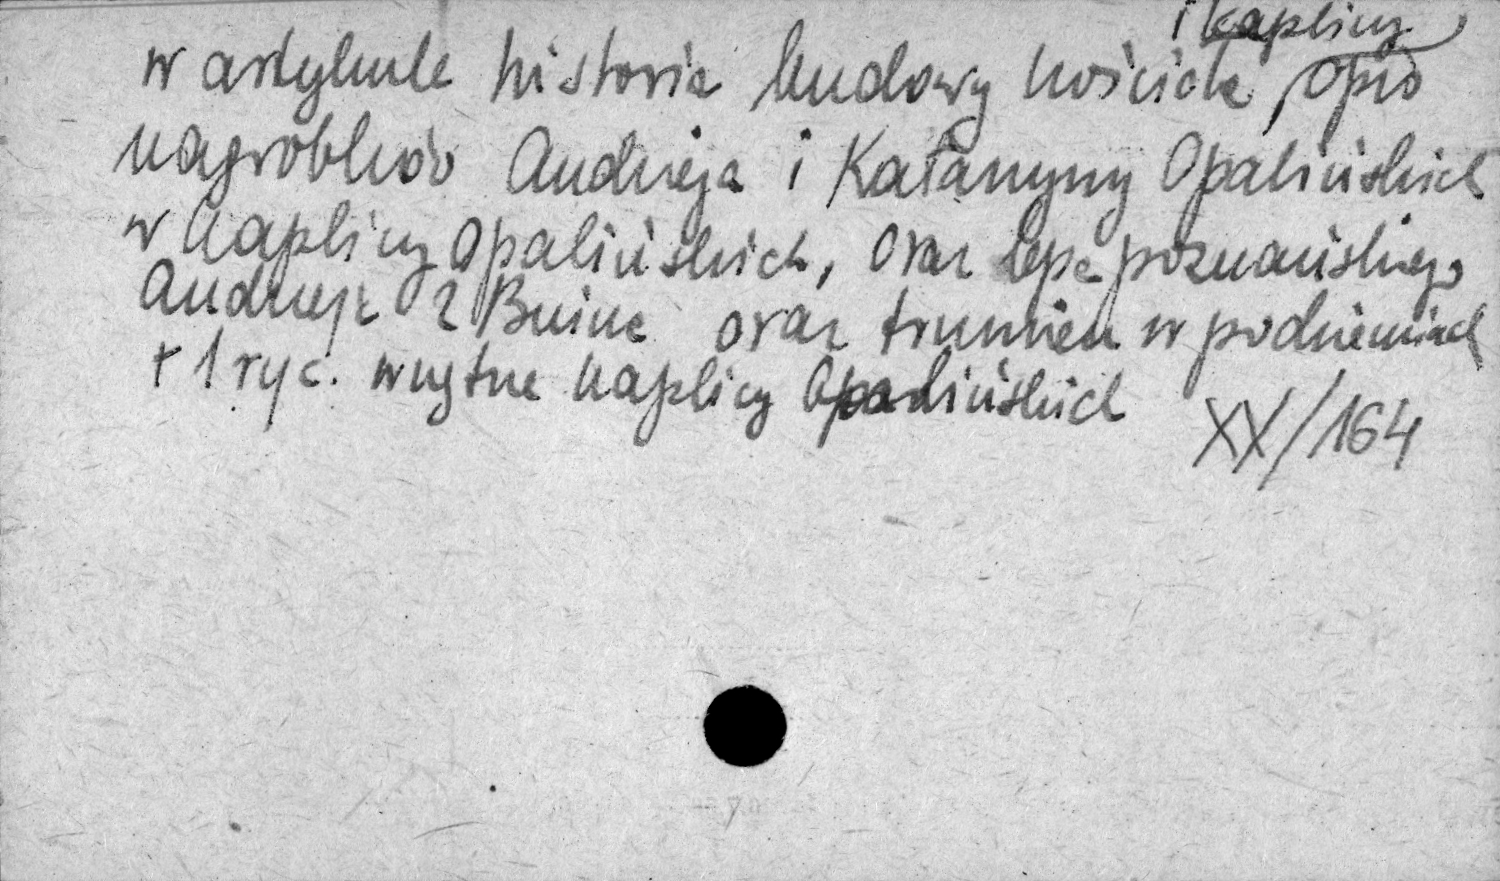 i kaplicy
w artykule historia budowy kościoła, opis
nagrobków Andrzeja i Katarzyny Opalińskich
w kaplicy Opalińskich, oraz bpa poznańskiego
Andrzeja z Bnina oraz trumien w podziemiach
+ 1 ryc. wnętrze kaplicy Opalińskich
XX/164